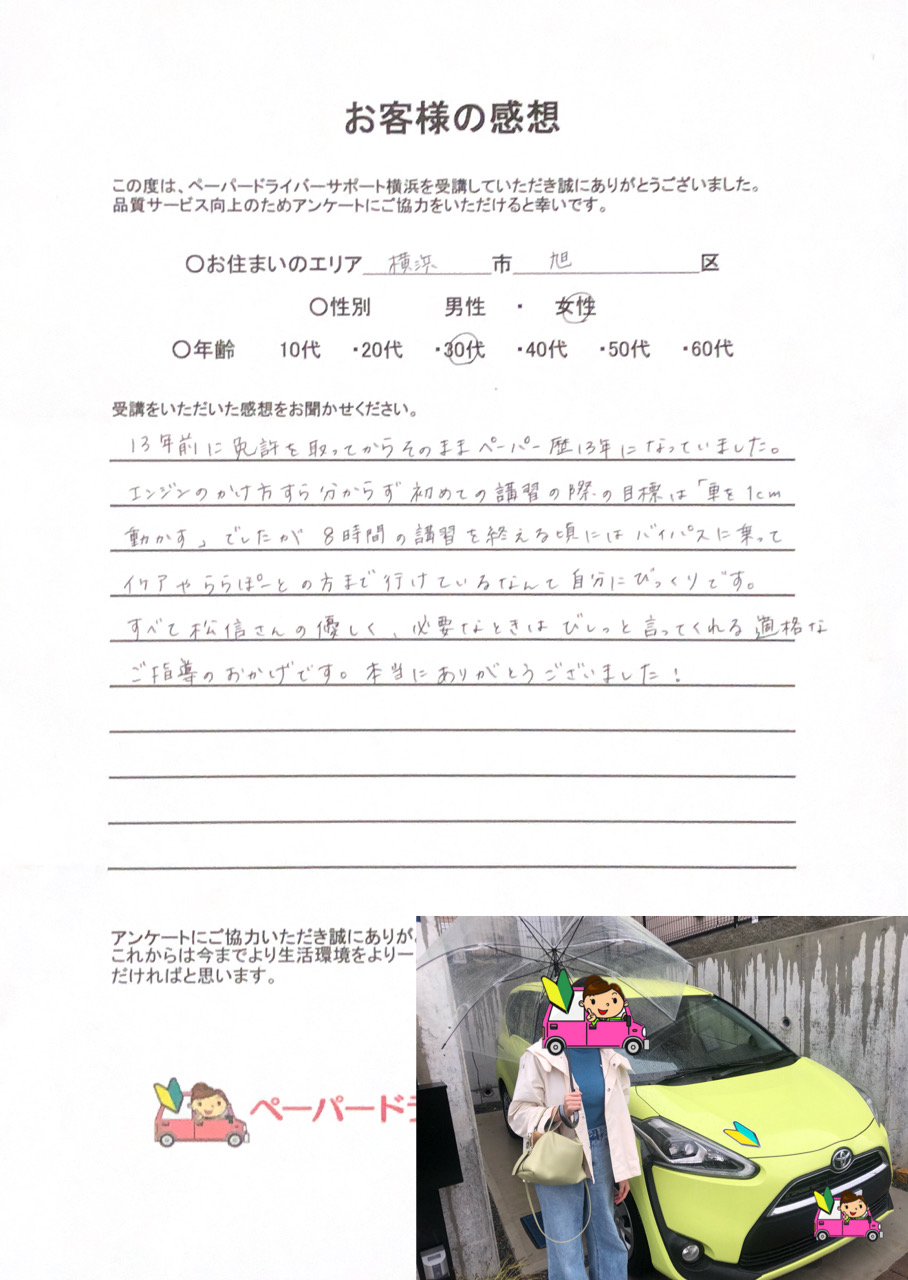 お客様の感想
この度は、ペーパードライバーサポート横浜を受講していただき誠にありがとうございました。
品質サービス向上のためアンケートにご協力をいただけると幸いです。
〇お住まいのエリア 横浜 市 旭 区
〇性別 男性 ・ 女性
〇年齢 10代 ・20代 ・30代 ・40代 ・50代 ・60代
受講をいただいた感想をお聞かせください。
13年前に免許を取ってからそのままペーパー歴13年になっていました。
エンジンのかけ方すら分からず初めての講習の際の目標は「車を1cm
動かす」でしたが 8時間の講習を終える頃にはバイパスに乗って
イケアやららぽーとの方まで行けているなんて自分にびっくりです。
すべて松信さんの優しく、必要なときはびしっと言ってくれる適格な
ご指導のおかげです。本当にありがとうございました!
アンケートにご協力いただき誠にありが
これからは今までより生活環境をより一
だければと思います。
ペーパード